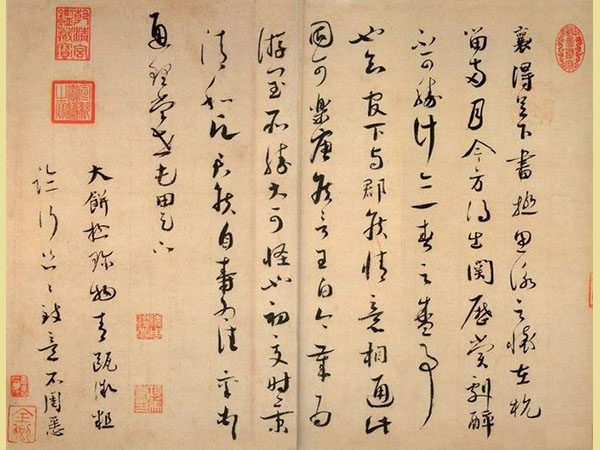 襄得足下書極思詠之懷在杭
留兩月今方得出關歷賞劇醉
不可勝計亦一春之盛事
也知官下與郡侯情意相通此
固可樂唐侯言王白今歲為
游閏所勝大可怪也初夏時景
清和願君侯自壽為佳襄頓首
通理當世屯田足下
大餅極珍物青甌微粗
臨行匆々致意不周悉